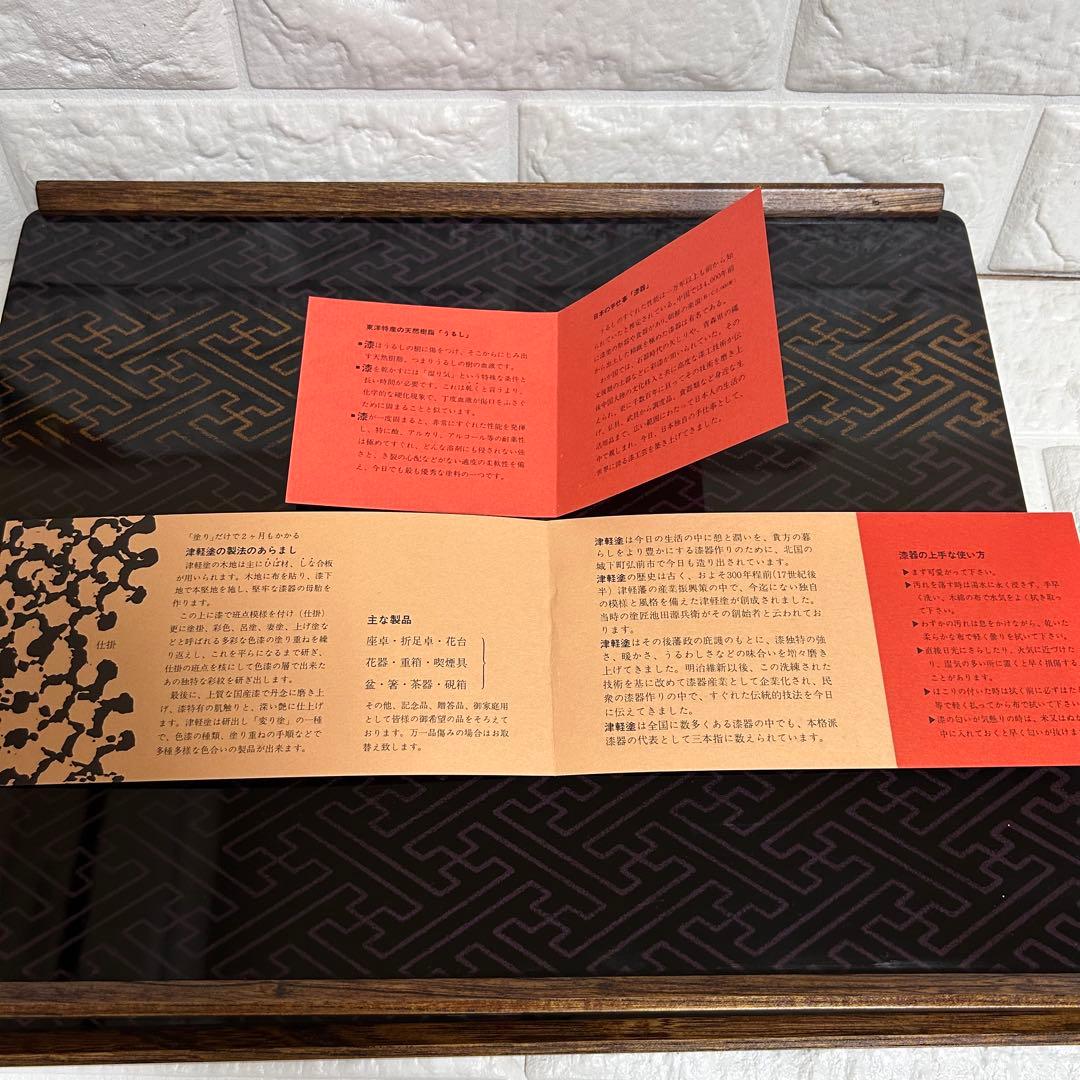 東洋特産の天然樹脂「うるし」
■漆はうるしの樹に傷をつけ、そこからにじみ出
す天然樹脂。つまりうるしの樹の血液です。
■漆を乾かすには「湿り気」という特殊な条件と
長い時間が必要です。これは乾くと言うより、
化学的な硬化現象で、丁度血液が傷口をふさぐ
ために固まることと似ています。
■漆が一度固まると、非常にすぐれた性能を発揮
し、特に酸、アルカリ、アルコール等の耐薬性
は極めてすぐれ、どんな溶剤にも侵されない強
さと、き裂の心配などがない適度の柔軟性を備
え、今日でも最も優秀な塗料の一つです。
日本の手仕事「漆器」
うるしのすぐれた性能は一万年以上も前から知
られていたと推定されている。中国では4,000年前
に漆塗の祭器や食器があり、朝鮮の楽浪
から出土した精緻を極めた漆器は有名である。
わが国では、石器時代の矢じりや、青森県の縄
文後期の土器などに彩漆が用いられていた。その
後中国大陸の文化移入と共に高度な漆工技術が伝
えられ、更に千数百年に亘ってその技術を磨き上
げ、仏具、武具から調度品、食器類など身近な生
活用品まで、広い範囲にわたって日本人の生活の
中で親しまれ、今日、日本独自の手仕事として、
世界に誇る漆工芸を築き上げてきました。
「塗り」だけで2ヶ月もかかる
津軽塗の製法のあらまし
津軽塗の木地は主にひば材、しな合板
が用いられます。木地に布を貼り、漆下
地で本堅地を施し、堅牢な漆器の母胎を
作ります。
この上に漆で斑点模様を付け(仕掛)
更に塗掛、彩色、呂塗、妻塗、上げ塗な
どと呼ばれる多彩な色漆の塗り重ねを繰
り返えし、これを平らになるまで研ぎ、
仕掛の斑点を核にして色漆の層で出来た
あの独特な彩紋を研ぎ出します。
最後に、上質な国産漆で丹念に磨き上
げ、漆特有の肌触りと、深い艶に仕上げ
ます。津軽塗は研出し「変り塗」の一種
で、色漆の種類、塗り重ねの手順などで
多種多様な色合いの製品が出来ます。
仕掛
主な製品
座卓・折足卓・花台
花器・重箱・喫煙具
盆・箸・茶器・硯箱
その他、記念品、贈答品、御家庭用
として皆様の御希望の品をそろえて
おります。万一品傷みの場合はお取
替え致します。
津軽塗は今日の生活の中に憩と潤いを、貴方の暮
らしをより豊かにする漆器作りのために、北国の
城下町弘前市で今日も造り出されています。
津軽塗の歴史は古く、およそ300年程前(17世紀後
半)津軽藩の産業振興策の中で、今迄にない独自
の模様と風格を備えた津軽塗が創成されました。
当時の塗匠池田源兵衛がその創始者と云われて
おります。
津軽塗はその後藩政の庇護のもとに、漆独特の強
さ、暖かさ、うるわしさなどの味合いを増々磨き
上げてきました。明治維新以後、この洗練された
技術を基に改めて漆器産業として企業化され、民
衆の漆器作りの中で、すぐれた伝統的技法を今日
に伝えてきました。
津軽塗は全国に数多くある漆器の中でも、本格派
漆器の代表として三本指に数えられています。
漆器の上手な使い方
▶まず可愛がって下さい。
▶汚れを落す時は湯水に永く浸さず、手早
く洗い、木綿の布で水気をよく拭き取っ
て下さい。
▶わずかの汚れは息をかけながら、乾いた
柔らかな布で軽く曇りを拭いて下さい。
▶直接日光にさらしたり、火気に近づけた
り、湿気の多い所に置くと早く損傷する
ことがあります。
▶ほこりの付いた時は拭く前に必ずはた
等で軽く払ってから布で拭いて下さい
▶漆の匂いが気懸りの時は、米又はぬか
中に入れておくと早く匂いが抜けま